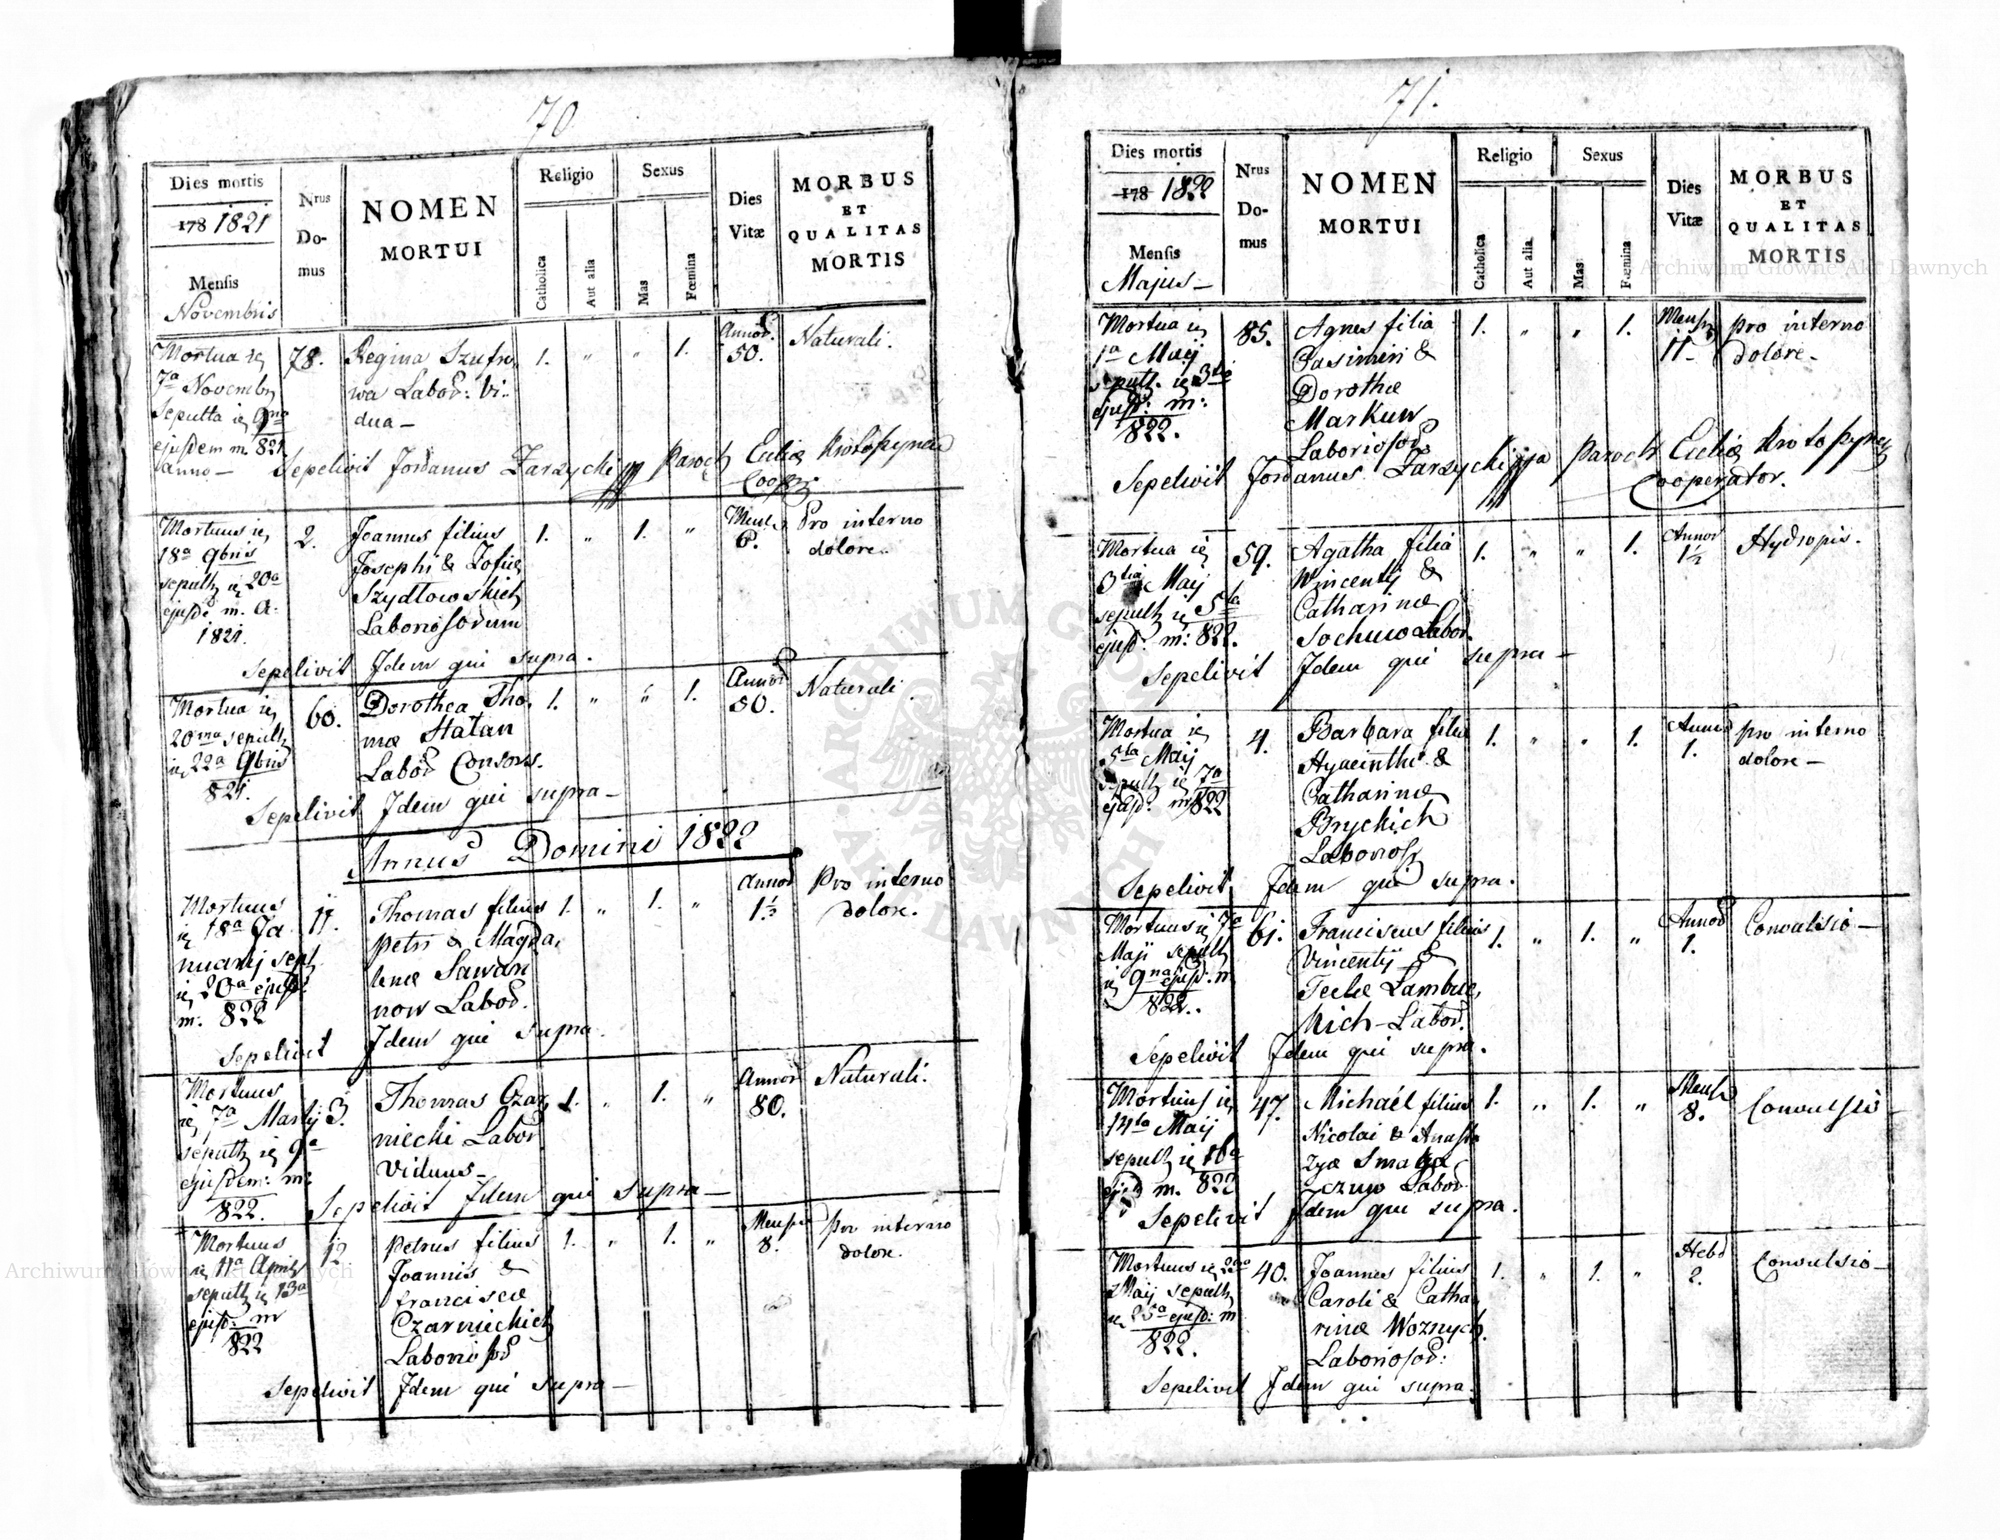 70
Dies mortis
178 1821
Mensis
Novembris
Nrus Domus
NOMEN
MORTUI
Religio
Catholica
Aut alia
Sexus
Mas
Fœmina
Dies
Vitæ
MORBUS
ET
QUALITAS
MORTIS
Mortua
7a Novembr
sepulta 9na
ejusdem m. 821
anno
78.
Regina Szufro
wa Labor: Vi
dua
1. " " 1.
Annor
50.
Naturali.
Sepelivit Jordanus Zarzycki Paroch Eccliæ Krotoszynen
Mortuus
18a 9bris
sepult 20a
ejusd. m. a.
1821.
2.
Joannes filius
Josephi & Zofiæ
Szydłowskich
Laboriosorum
1. " 1. "
Mens
6.
Pro interno
dolore.
Sepelivit Idem qui supra.
Mortua
20ma sepult
22a 9bris
821.
60.
Dorothea Tho
mæ Hałan
Labor Consors.
1. " " 1.
Annor
50.
Naturali.
Sepelivit Idem qui supra
Annus Domini 1822
Mortuus
18a Ja
nuarij sept
20a ejusd.
m. 822
11.
Thomas filius
Petri & Magda
lenæ Sawan
now Labor.
1. " 1. "
Annor
1½
Pro interno
dolore.
Sepelivit Idem qui supra.
Mortuus
7a Martij
sepult 9a
ejusdem: m:
822.
3.
Thomas Czar
niecki Labor
Viduus
1. " 1. "
Annor
80.
Naturali.
Sepelivit Idem qui supra
Mortuus
11a Aprilis
sepult 13a
ejusd: m
822
12
Petrus filius
Joannis &
Franciscæ
Czarnieckich
Laborios
1. " 1. "
Mens
8.
Pro interno
dolore.
Sepelivit Idem qui supra
71.
Dies mortis
178 1822
Mensis
Majus
Nrus Domus
NOMEN
MORTUI
Religio
Catholica
Aut alia
Sexus
Mas
Fœmina
Dies
Vitæ
MORBUS
ET
QUALITAS
MORTIS
Mortua
1a Maij
sepult. 3tia
ejusd: m:
822.
85.
Agnes filia
Casimiri &
Dorotheæ
Markuw
Laborios
1. " " 1.
Mens
11
Pro interno
dolore
Sepelivit Jordanus Zarzycki Paroch Eccliæ Krotoszynen
Cooperator.
Mortua
3tia Maij
sepult 5ta
ejusd. m: 822.
59.
Agatha filia
Wincentij &
Catharinæ
Sochuw Labor.
1. " " 1.
Annor
1½
Hydropis.
Sepelivit Idem qui supra
Mortua
5ta Maij
sepult 7a
ejusd: m 822
4.
Barbara filia
Hyacinthi &
Catharinæ
Brychich
Laborios
1. " " 1.
Annus
1.
pro interno
dolore
Sepelivit Idem qui supra.
Mortuus 7a
Maji sepult
9na ejusd: m
822.
61.
Franciscus filius
Vincentij &
Teclæ Lambuc
kich Labor.
1. " 1. "
Annor
1.
Convulsio
Sepelivit Idem qui supra.
Mortuus
14ta Maij
sepult 16a
ejusd m. 822
47.
Michaël filius
Nicolai & Anasta
zyæ Smaga
czuw Labor
1. " 1. "
Mens
8.
Convulsio
Sepelivit Idem qui supra.
Mortuus
Maij sepult
25a ejusd: m
822.
40.
Joannes filius
Caroli & Catha
rinæ Woznych.
Laborios:
1. " 1. "
Hebd
2.
Convulsio
Sepelivit Idem qui supra.
ARCHIWUM GŁÓWNE AKT DAWNYCH
Archiwum Główne Akt Dawnych
Archiwum Główne Akt Dawnych